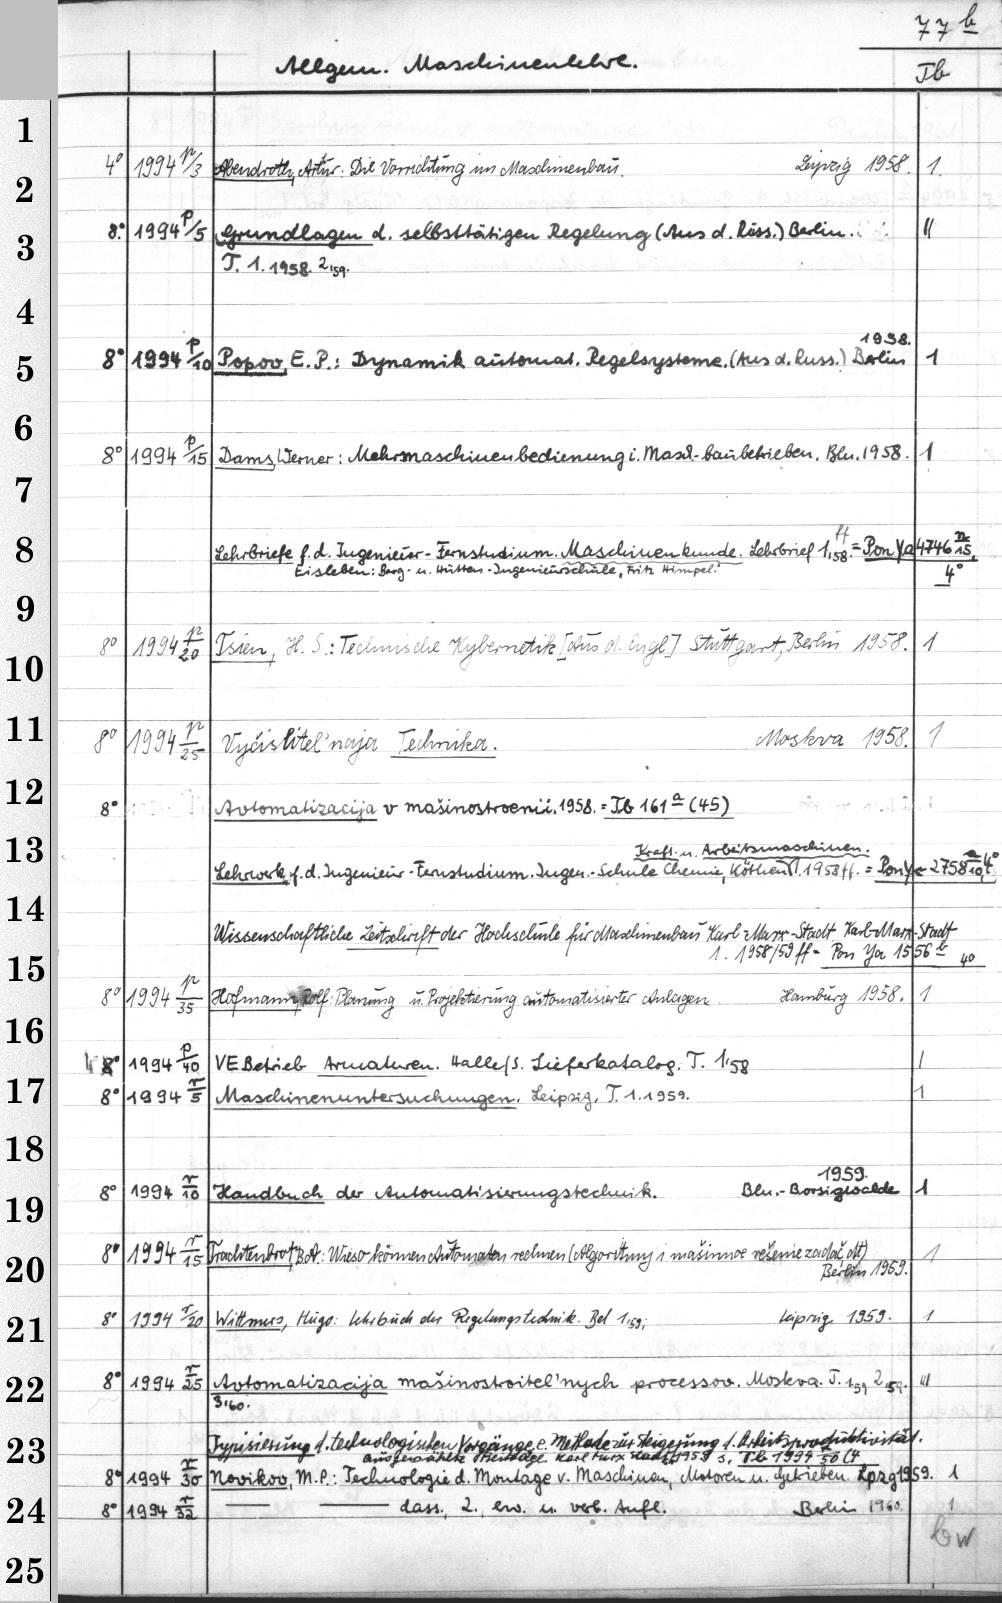 77 b
Allgem. Maschinenlehre. Ib
1
4° 1994 p/3 Abendroth, Artur: Die Vorrichtung im Maschinenbau. Leipzig 1958. 1.
2
8° 1994 p/5 Grundlagen d. selbsttätigen Regelung (Aus d. Russ.) Berlin. II
3
T. 1. 1958. 2,59.
4
1958.
8° 1994 p/10 Popov, E. P.: Dynamik automat. Regelsysteme. (Aus d. Russ.) Berlin 1
5
6
8° 1994 p/15 Dams, Werner: Mehrmaschinenbedienung i. Masch.-baubetrieben. Bln. 1958. 1
7
8
Lehrbriefe f. d. Ingenieur-Fernstudium. Maschinenkunde. Lehrbrief 1,58. ff = Pon Ya 4746 n/15, 4°
Eisleben: Berg- u. Hütten-Ingenieurschule, Fritz Himpel.
9
8° 1994 p/20 Tsien, H. S.: Technische Kybernetik [Aus d. Engl] Stuttgart, Berlin 1958. 1
10
11
8° 1994 p/25 Vyčislitel'naja Technika. Moskva 1958. 1
12
8° Avtomatizacija v mašinostroenii. 1958. = Ib 161 a (45)
13
Kraft- u. Arbeitsmaschinen.
Lehrwerk f. d. Ingenieur-Fernstudium. Ingen.-Schule Chemie, Köthen 1. 1958 ff. = Pon Y 2758 a/10 4°
14
Wissenschaftliche Zeitschrift der Hochschule für Maschinenbau Karl-Marx-Stadt Karl-Marx-Stadt
1. 1958/59 ff = Pon Ya 1556 b 4°
15
8° 1994 p/35 Hofmann, Rolf: Planung u. Projektierung automatisierter Anlagen. Hamburg 1958. 1
16
8° 1994 p/40 VE Betrieb Armaturen. Halle/S. Lieferkatalog. T. 1,58 1
17
8° 1994 r/5 Maschinenuntersuchungen. Leipzig. T. 1. 1959. 1
18
1959.
8° 1994 r/10 Handbuch der Automatisierungstechnik. Bln.-Borsigwalde 1
19
8° 1994 r/15 Trachtenbrot, B. A.: Wieso können Automaten rechnen (Algoritmy i mašinnoe rešenie zadač, dt) 1
20
Berlin 1959.
8° 1994 r/20 Wittmers, Hugo: Lehrbuch der Regelungstechnik. Bd 1,59; Leipzig 1959. 1
21
22
8° 1994 r/25 Avtomatizacija mašinostroitel'nych processov. Moskva. T. 1,59 2,59. III
3,60.
Typisierung d. technologischen Vorgänge e. Methode zur Steigerung d. Arbeitsproduktivität.
23
ausgewählte Beiträge. Karl Marx Stadt 1959 s. Ib 1994 50 (4
8° 1994 r/30 Novikov, M. P.: Technologie d. Montage v. Maschinen, Motoren u. Getrieben. Lpzg 1959. 1
24
8° 1994 r/32 — — dass., 2., erw. u. verb. Aufl. Berlin 1960. 1
bw
25